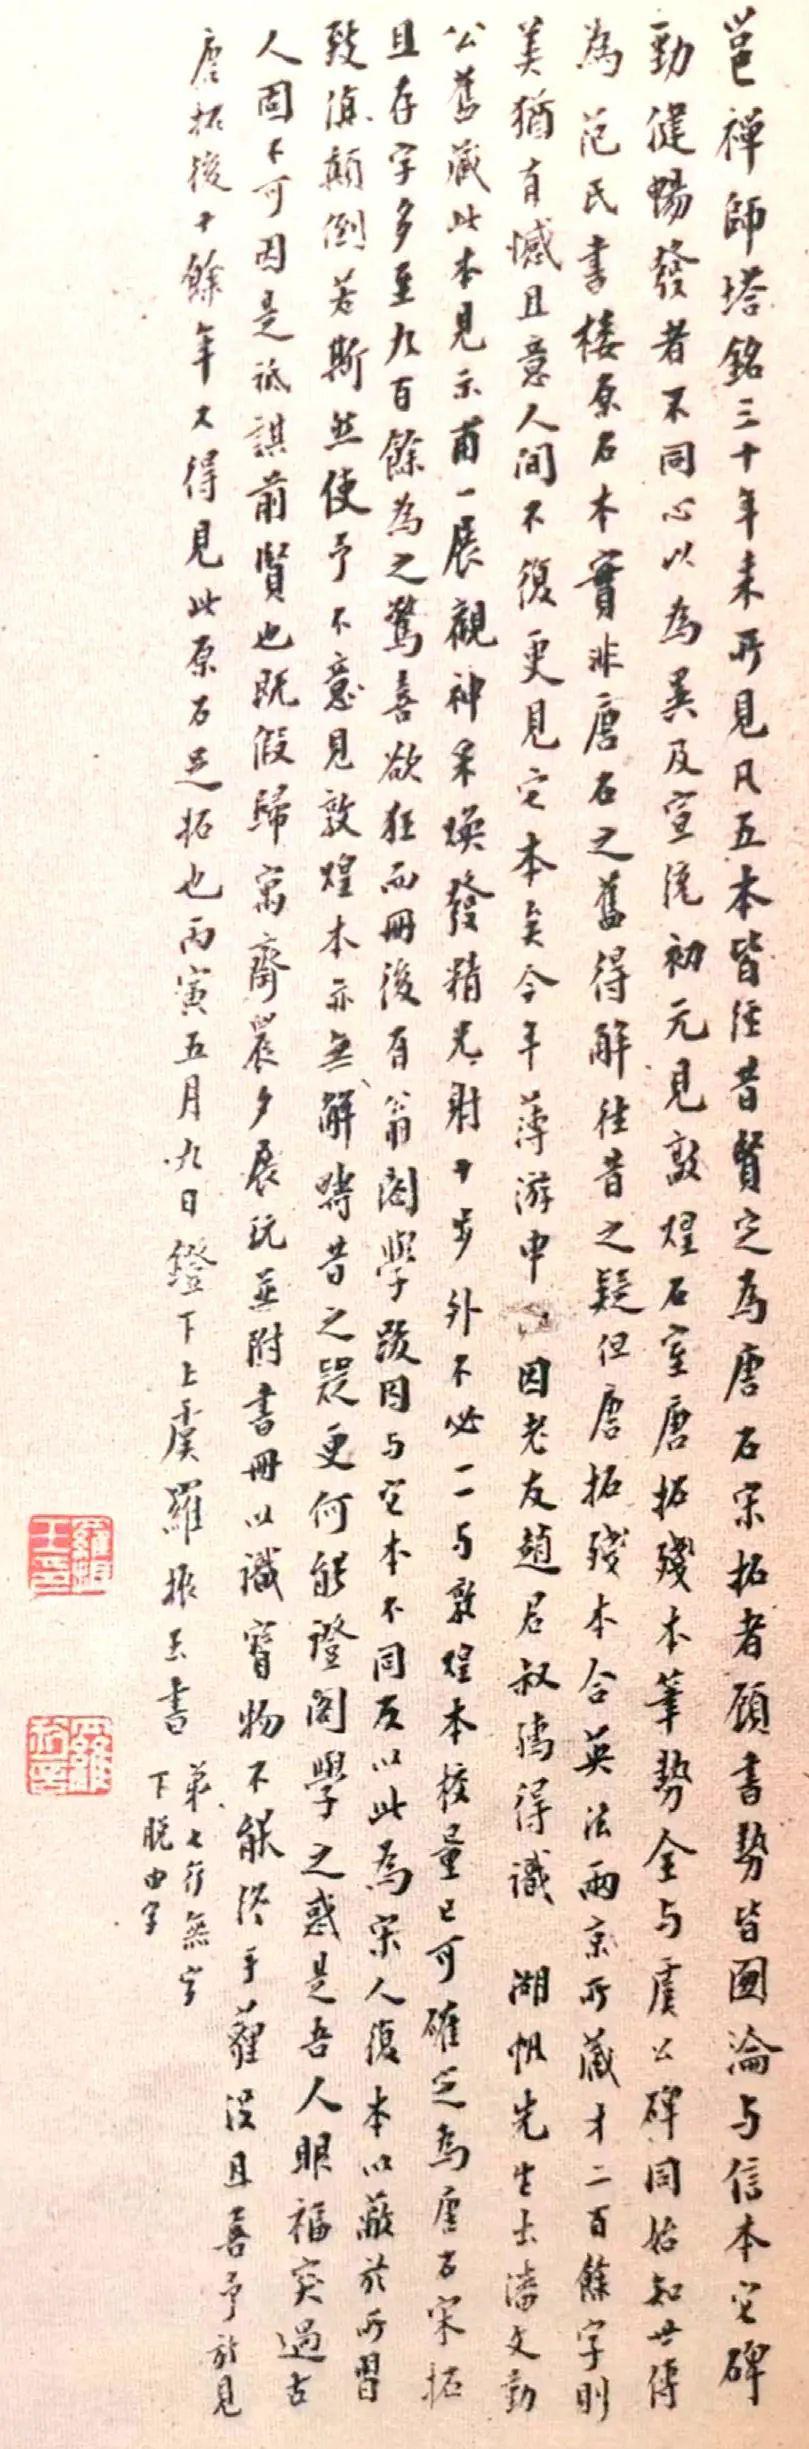 邕禪師塔銘三十年來所見凡五本皆經昔賢定為唐石宋拓者顧書勢皆圓淪與信本它碑
勁健暢發者不同心以為異及宣統初元見敦煌石室唐拓殘本筆勢全與虞公碑同始知世傳
為范氏書樓原石本實非唐石之舊得解往昔之疑但唐拓殘本合英法兩京所藏才二百餘字則
美猶有憾且意人間不復更見它本矣今年薄游申江因老友趙君叔孺得識 湖帆先生出潘文勤
公舊藏此本見示甫一展觀神采煥發精光射十步外不必一一与敦煌本校量已可確定為唐石宋拓
且存字多至九百餘為之驚喜欲狂而冊後有翁閣學跋因与它本不同反以此為宋人復本以蔽於所習
致慎顛倒若斯然使予不意見敦煌本亦無解疇昔之惑更何能證閣學之惑是吾人眼福突過古
人固不可因是詆諆前賢也既假歸寓齋晨夕展玩並附書冊以識寶物不能終于薶沒且喜予於見
唐拓後十餘年又得見此原石足拓也丙寅五月九日鐙下上虞羅振玉書
第七行無字
下脫由字
羅振
玉印
羅